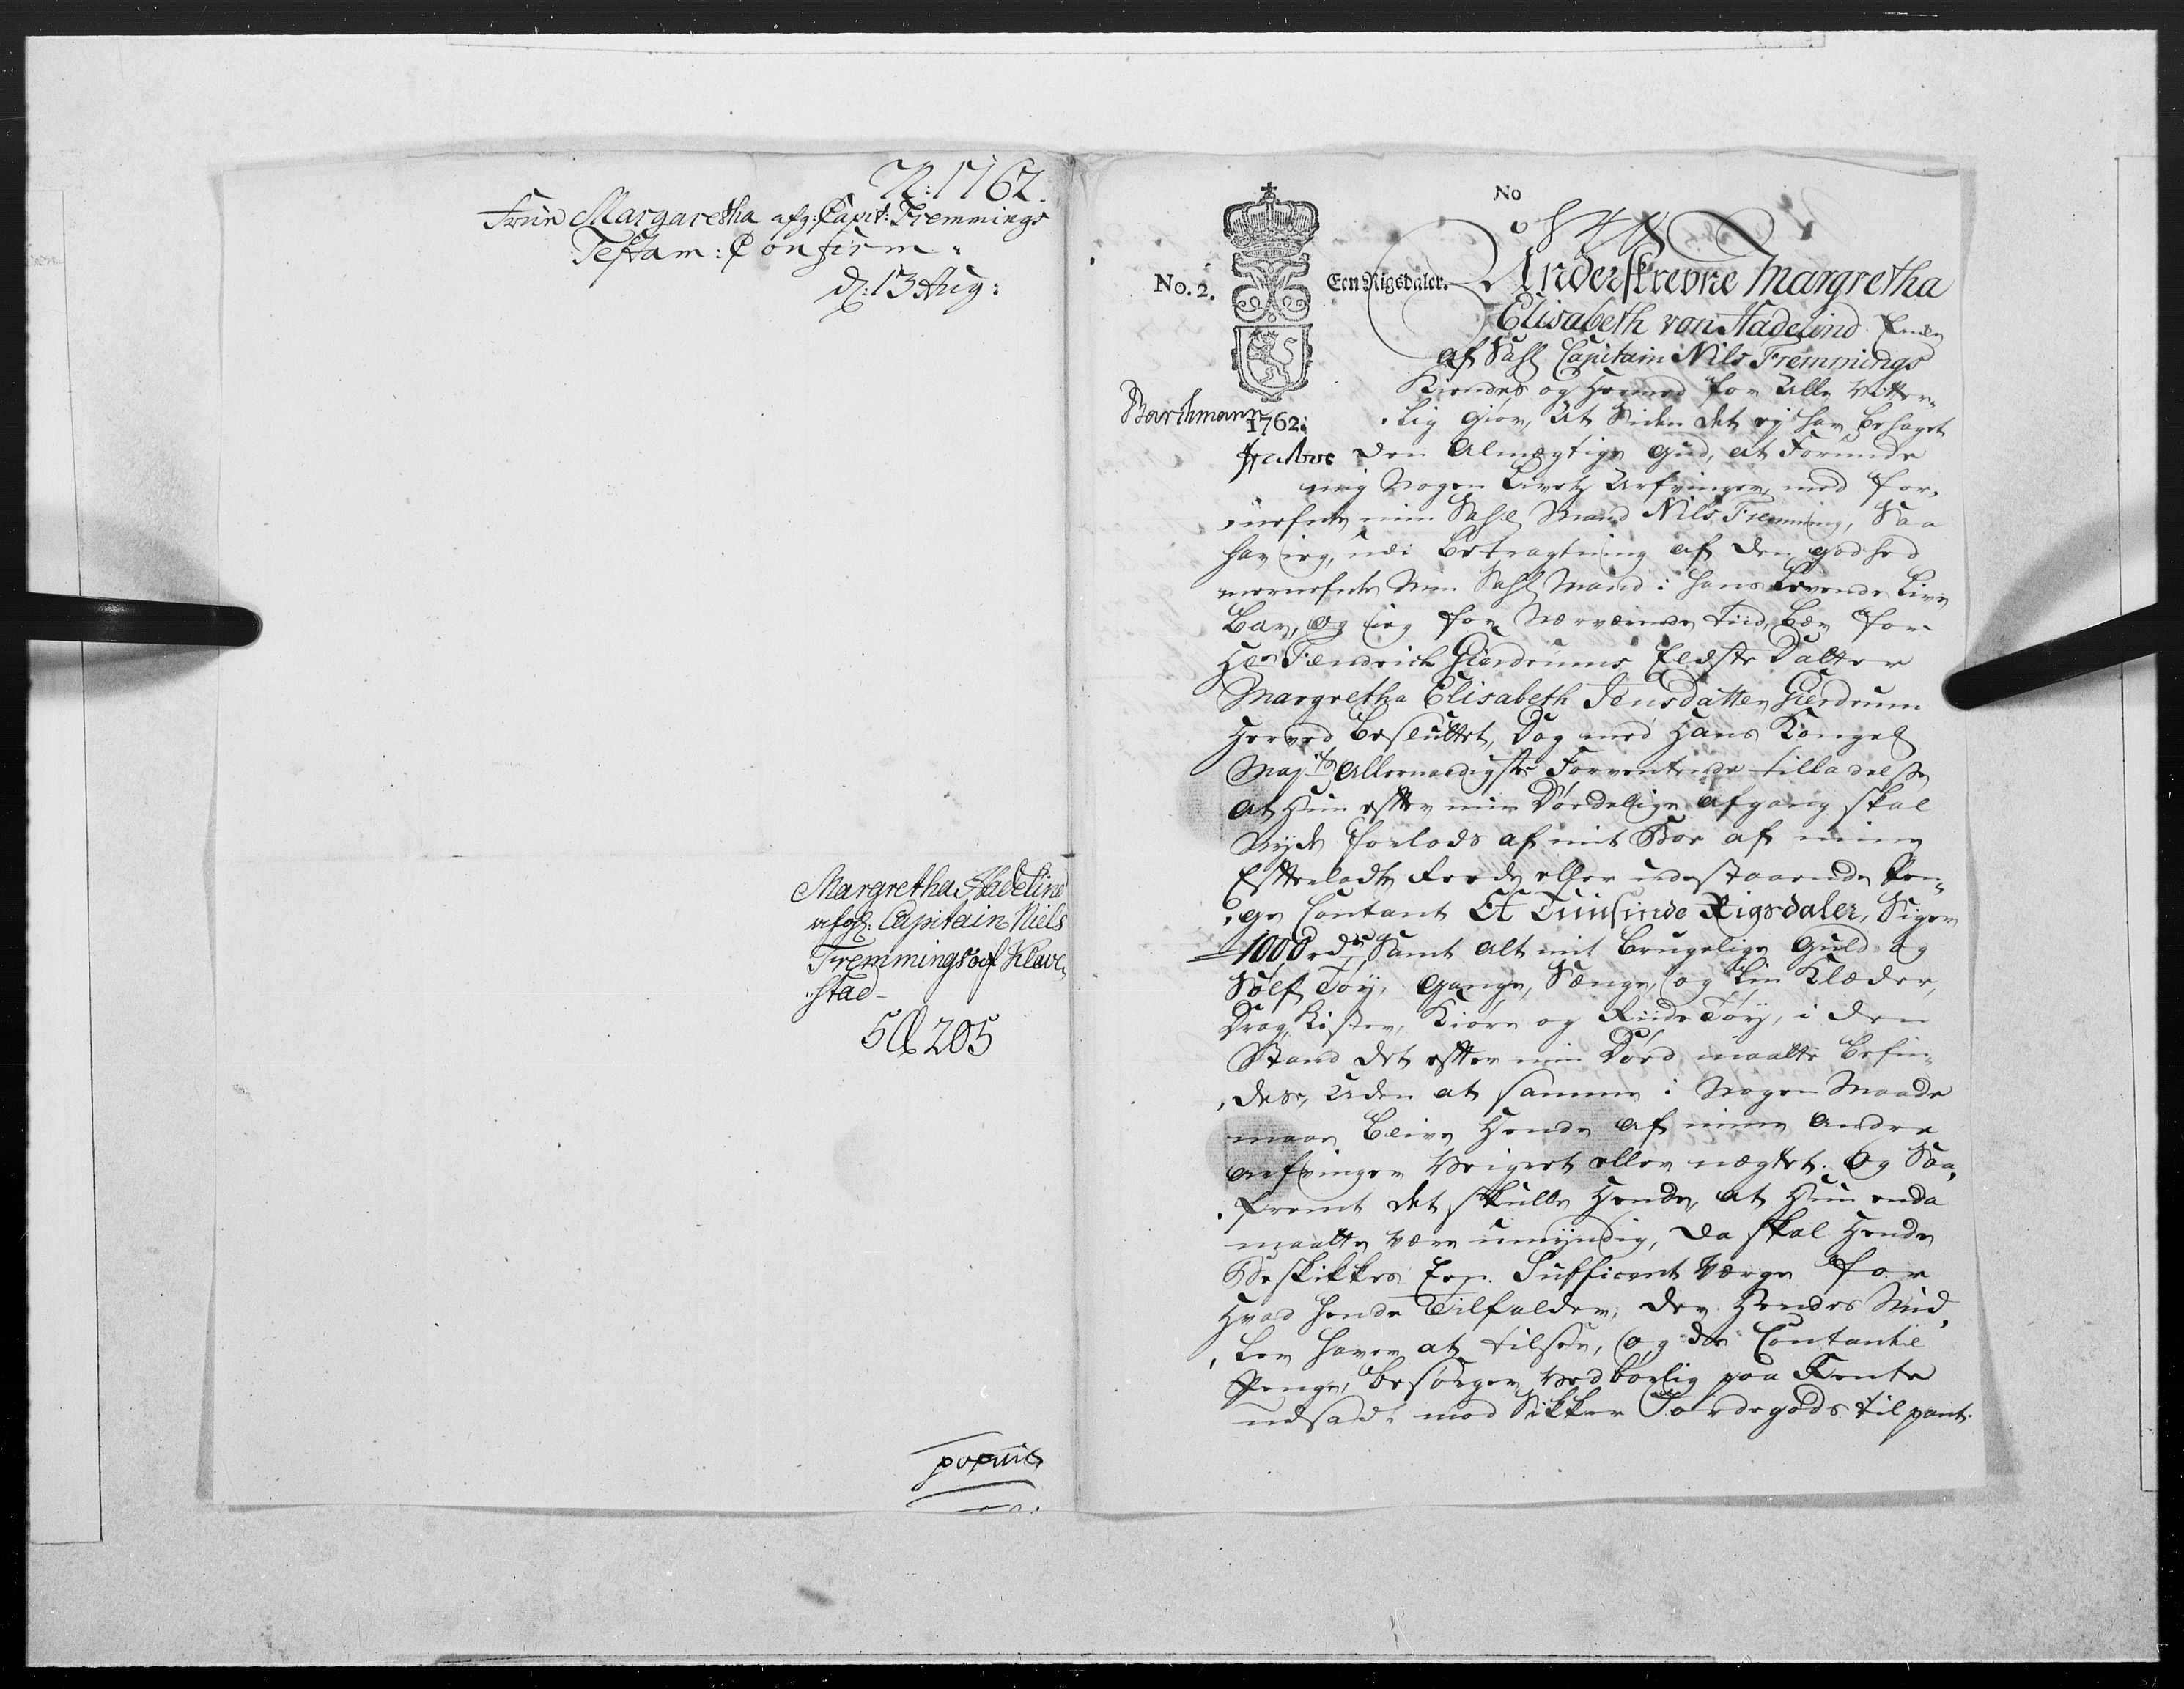 N: 1762.
Frue Margaretha afg: Capit: Fremmings
Testam: Confirm:
d: 13 Aug:
Margretha Hadelind
afg: Capitain Niels
Fremmings af Klave„
„stad
5 205
No
844
No. 2.
Een Rigsdaler.
Underskrevne Margretha
Elisabeth von Hadelind Encke
af Sahl Capitain Nils Fremmings
Kiendes og Hermed for Alle Vitter„
„lig Giør, At Siden det ey har behaget
Barthmann
1762.
den Almægtige Gud, at Forunde
mig Nogen Livetz Arfvinger, med for„
„nefnte min Sahl Mand Nils Fremming, Saa
har ieg, udi betragtning af den godhed
meernefnte Min Sahl Mand i hans Levende Live
Bar, og ieg for Nærværende tiid, bær for
Hr Fendrich Gierdrums Eldste Datter
Margretha Elisabeth Jensdatter Gierdrum
Herved besluttet, Dog med Hans Kongel
Maj:ts Allernaadigste Forventende tilladelse
at Hun efter min Dødelige afgang skal
Nyde forlods af mit Boe af mine
Efterladte Reede eller udestaaende Pen„
„ge Contant Et Tuusinde Rigsdaler, Siger
1000 rdr Samt alt mit brugelige Guld og
Sølf Tøy, Gange, Senge, og Lin Klæder,
Drag Kister, Kiøre og Riide Tøy, i den
Stand det efter min Død maatte befin„
„des, uden at samme i Nogen Maade
maae blive Hende af mine Andre
arfvinger Veigret eller negtet. Og Saa„
„fremt det skulle Hende, at Hun enda
maatte være umyndig, da skal Hende
Beskikkes Een Sufficent Værge for
Hvad hende Tilfalder, der Hendes Mid„
„ler haver at tilsee, og de Contante
Penge, besørger vedbørlig paa Rente
udsadt mod Sikker Jordegods til pant.